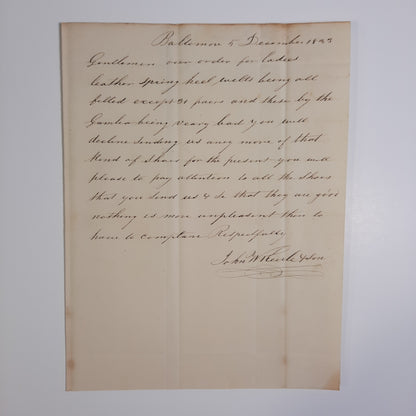 Baltimore 5 December 1835
Gentlemen our order for Ladies
leather spring heel, welts being all
filled except 31 pairs and these by the
being veary bad you will
decline sending us aney more of that
Kind of Shoes for the present you will
please to pay attention to all the Shoes
that you send us & se that they are good
nothing is more unpleasent then to
have to complain Respectfully
John W & Son